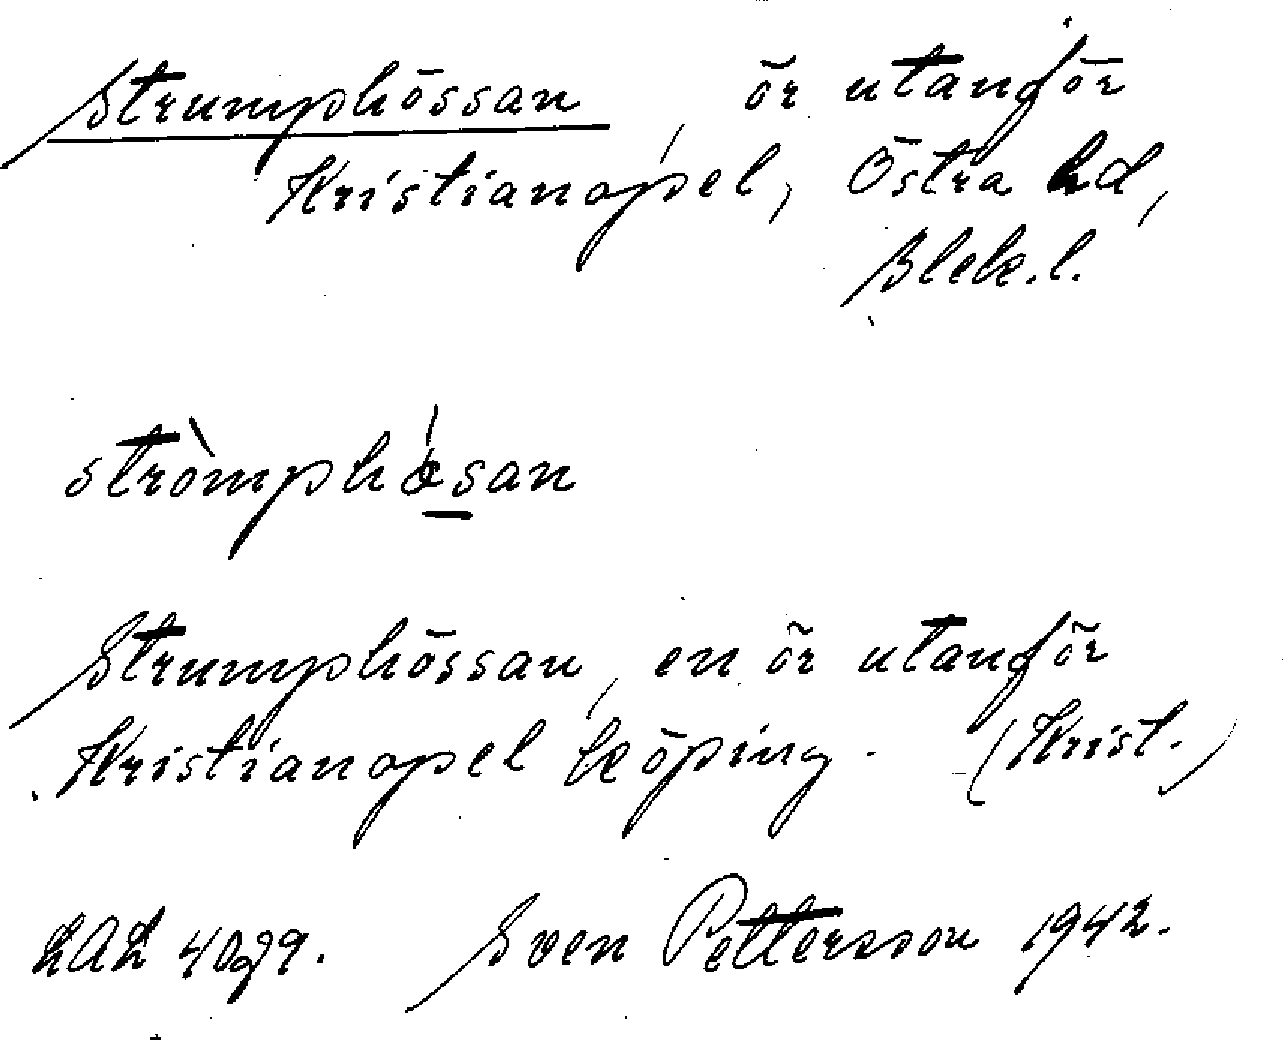 Strumphössan, ör utanför
Kristianopel, Östra hd,
Blek.l.
stròmphósan
Strumphössan, en ör utanför
Kristianopel köping. (Krist.)
LAL Sven Pettersson 1942.